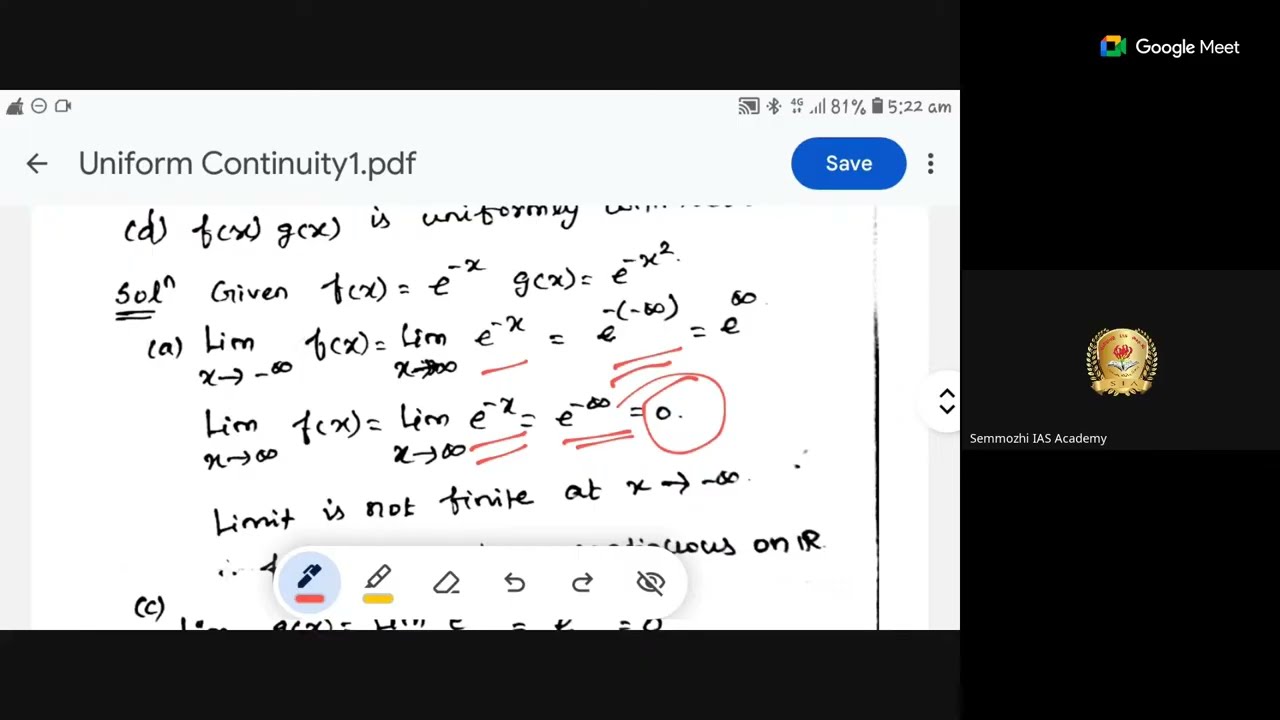 Google Meet
4G 81% 5:22 am
Uniform Continuity1.pdf
Save
(d) f(x) g(x) is uniformly
Solⁿ Given f(x) = e^{-x} g(x) = e^{-x^2}.
(a) Lim x→-∞ f(x) = Lim x→∞ e^{-x} = e^{-(-∞)} = e^{∞}
Lim x→∞ f(x) = Lim x→∞ e^{-x} = e^{-∞} = 0.
Limit is not finite at x → -∞.
∴ f on IR.
(c)
Semmozhi IAS Academy
SIA